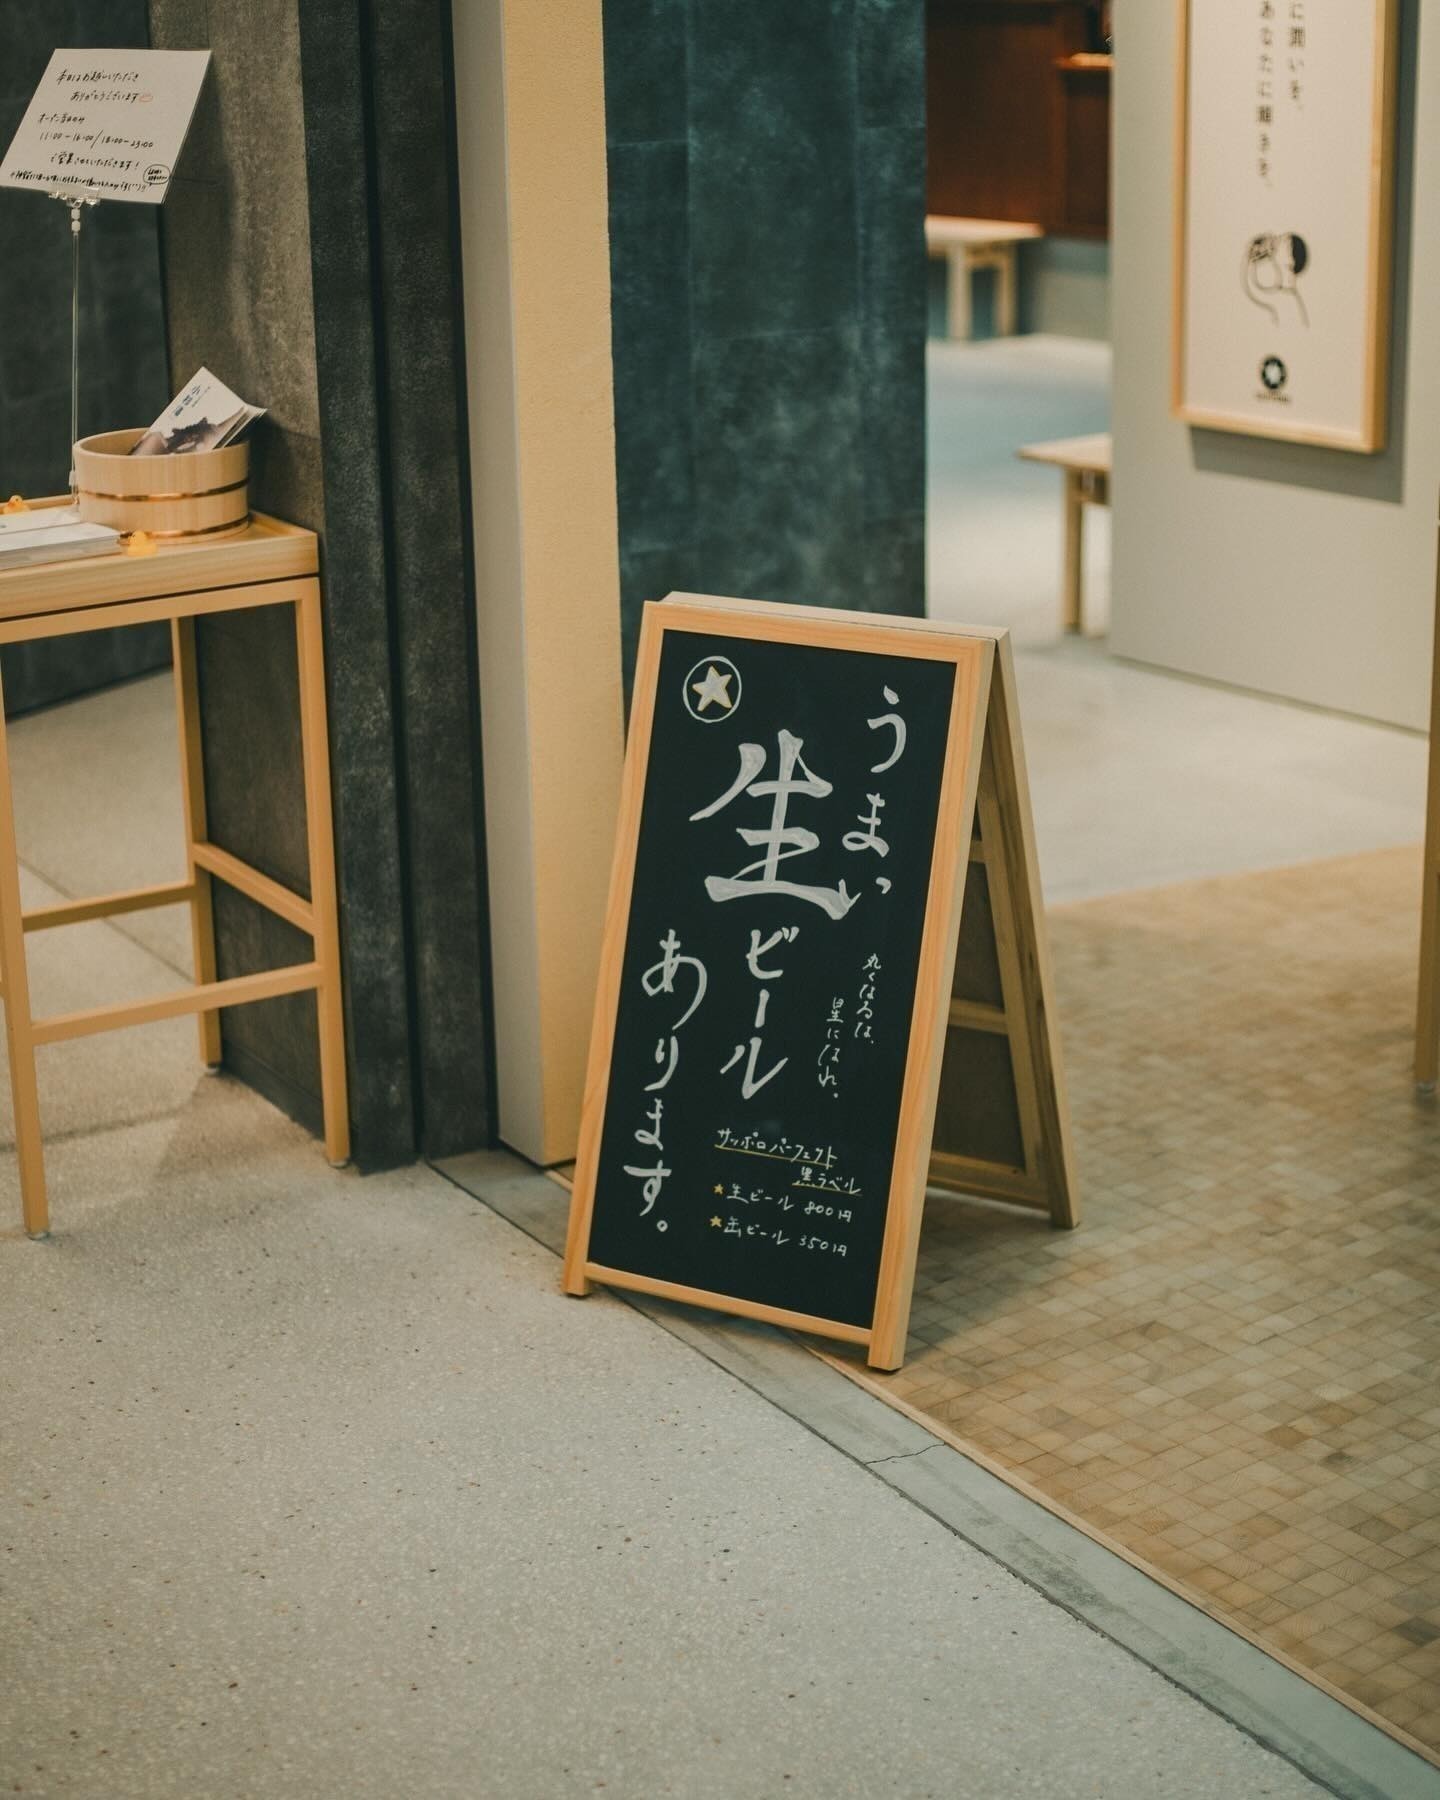 うまい
生ビール
あります。
丸くなるな、
星になれ。
サッポロ パーフェクト
黒ラベル
★生ビール 800円
★缶ビール 350円
本日はお越しいただき
ありがとうございます
オープン当日のみ
11:00-16:00/18:00-23:00
で営業させていただきます!
に潤いを、
あなたに輝きを。